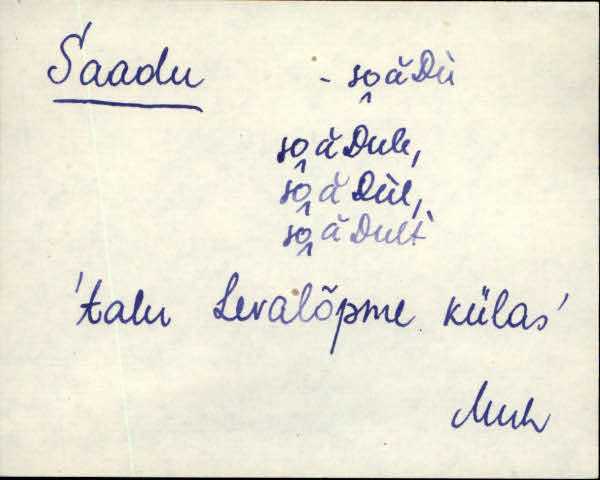 Saadu - so̭ăDù
so̭ăDuh,
so̭ăDùl,
so̭ăDult
'talu Levalõpme külas'
Muh